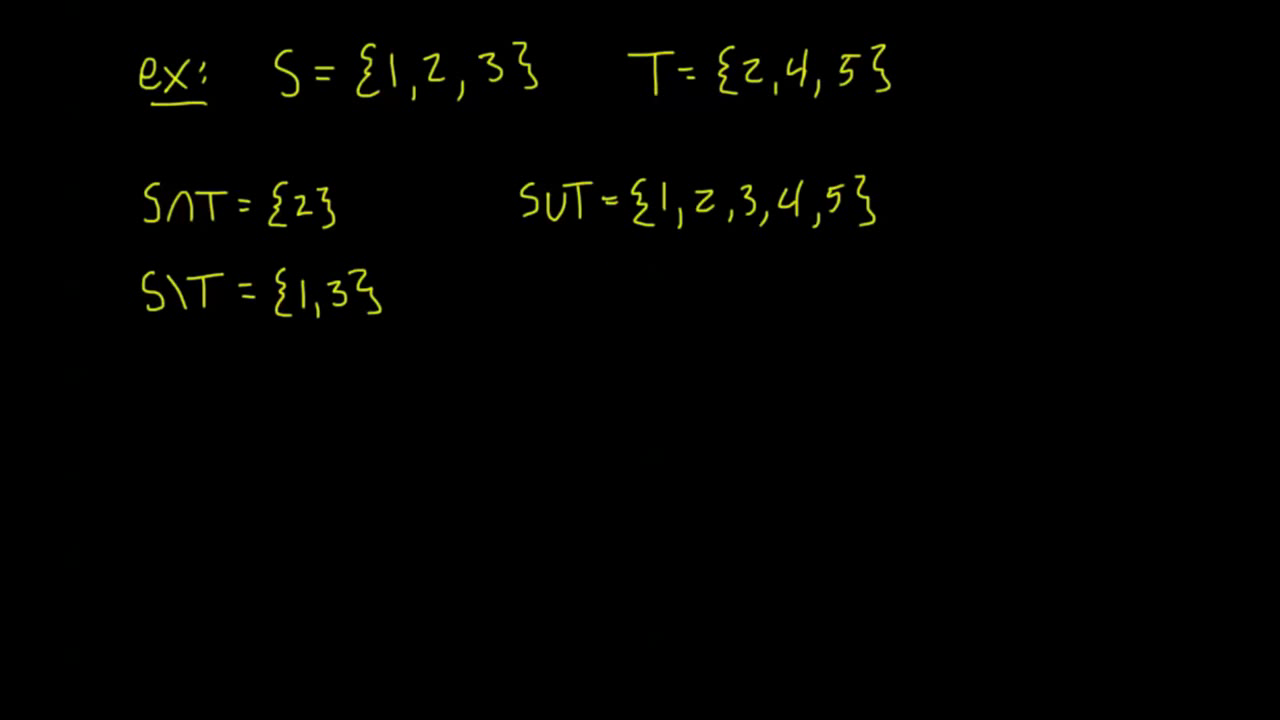 ex: S = {1, 2, 3} T = {2, 4, 5}
S∩T = {2} S∪T = {1, 2, 3, 4, 5}
S\T = {1, 3}